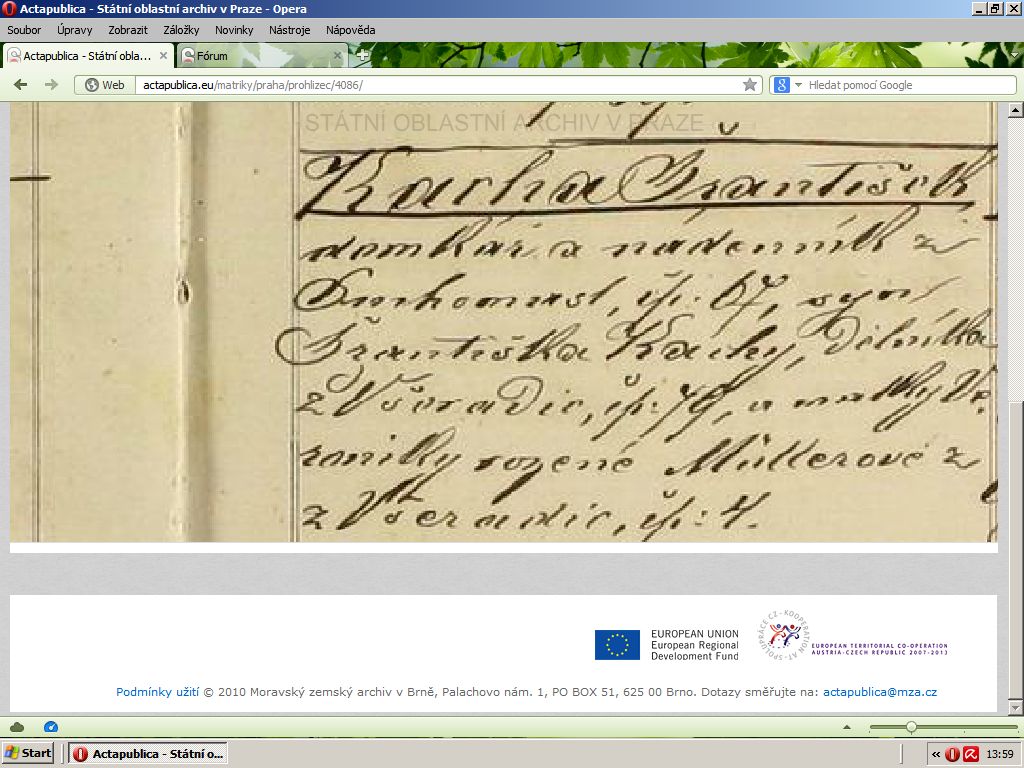 Actapublica - Státní oblastní archiv v Praze - Opera
Soubor Úpravy Zobrazit Záložky Novinky Nástroje Nápověda
Actapublica - Státní obla... Fórum
Web actapublica.eu/matriky/praha/prohlizec/4086/ Hledat pomocí Google
STÁTNÍ OBLASTNÍ ARCHIV V PRAZE
Kacha František
domkář a nádenník z
Suchomast, čp: 67, syn
Františka Káchy, Dělníka
z Všeradic, čp: 79, a matky Ve
roniky rozené Müllerové z
z Všeradic, čp: 4.
EUROPEAN UNION
European Regional
Development Fund
SPOLUPRÁCE CZ - KOOPERATION AT
EUROPEAN TERRITORIAL CO-OPERATION
AUSTRIA-CZECH REPUBLIC 2007-2013
Podmínky užití © 2010 Moravský zemský archiv v Brně, Palachovo nám. 1, PO BOX 51, 625 00 Brno. Dotazy směřujte na: actapublica@mza.cz
Start Actapublica - Státní o... 13:59